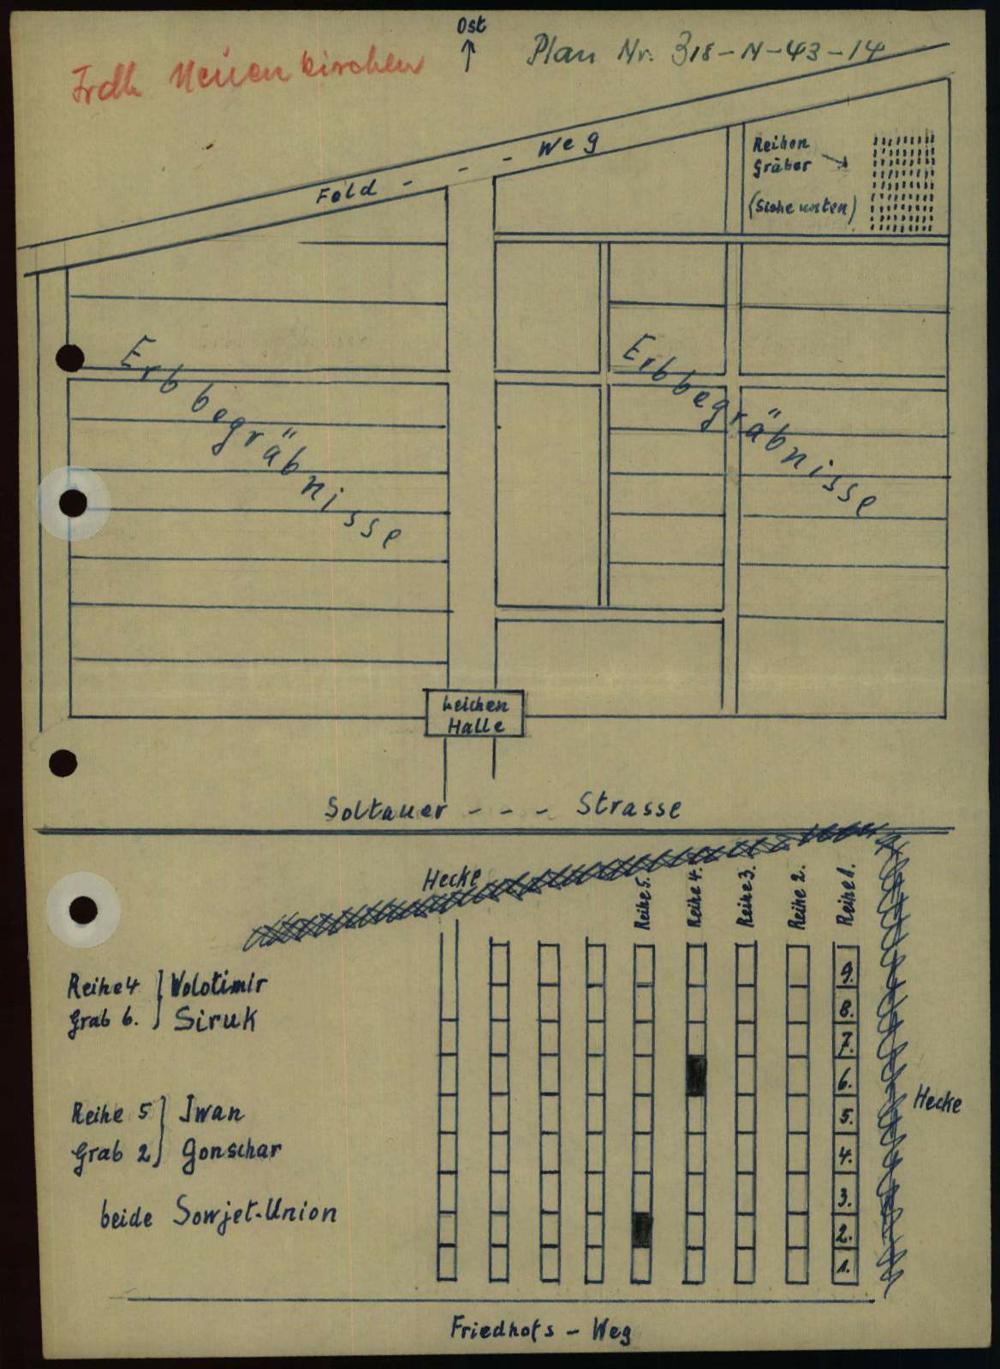 Ost
Frdh. Neuenkirchen
Plan Nr. 318-N-43-14
Feld - - - Weg
Reihen
Gräber
(Siehe unten)
Erbbegräbnisse
Erbbegräbnisse
Leichen
Halle
Soltauer - - - Strasse
Hecke
Reihe 5.
Reihe 4.
Reihe 3.
Reihe 2.
Reihe 1.
Reihe 4 } Wolotimir
Grab 6. } Siruk
Reihe 5 } Jwan
Grab 2 } Gonschar
beide Sowjet-Union
9.
8.
7.
6.
5.
4.
3.
2.
1.
Hecke
Friedhofs - Weg